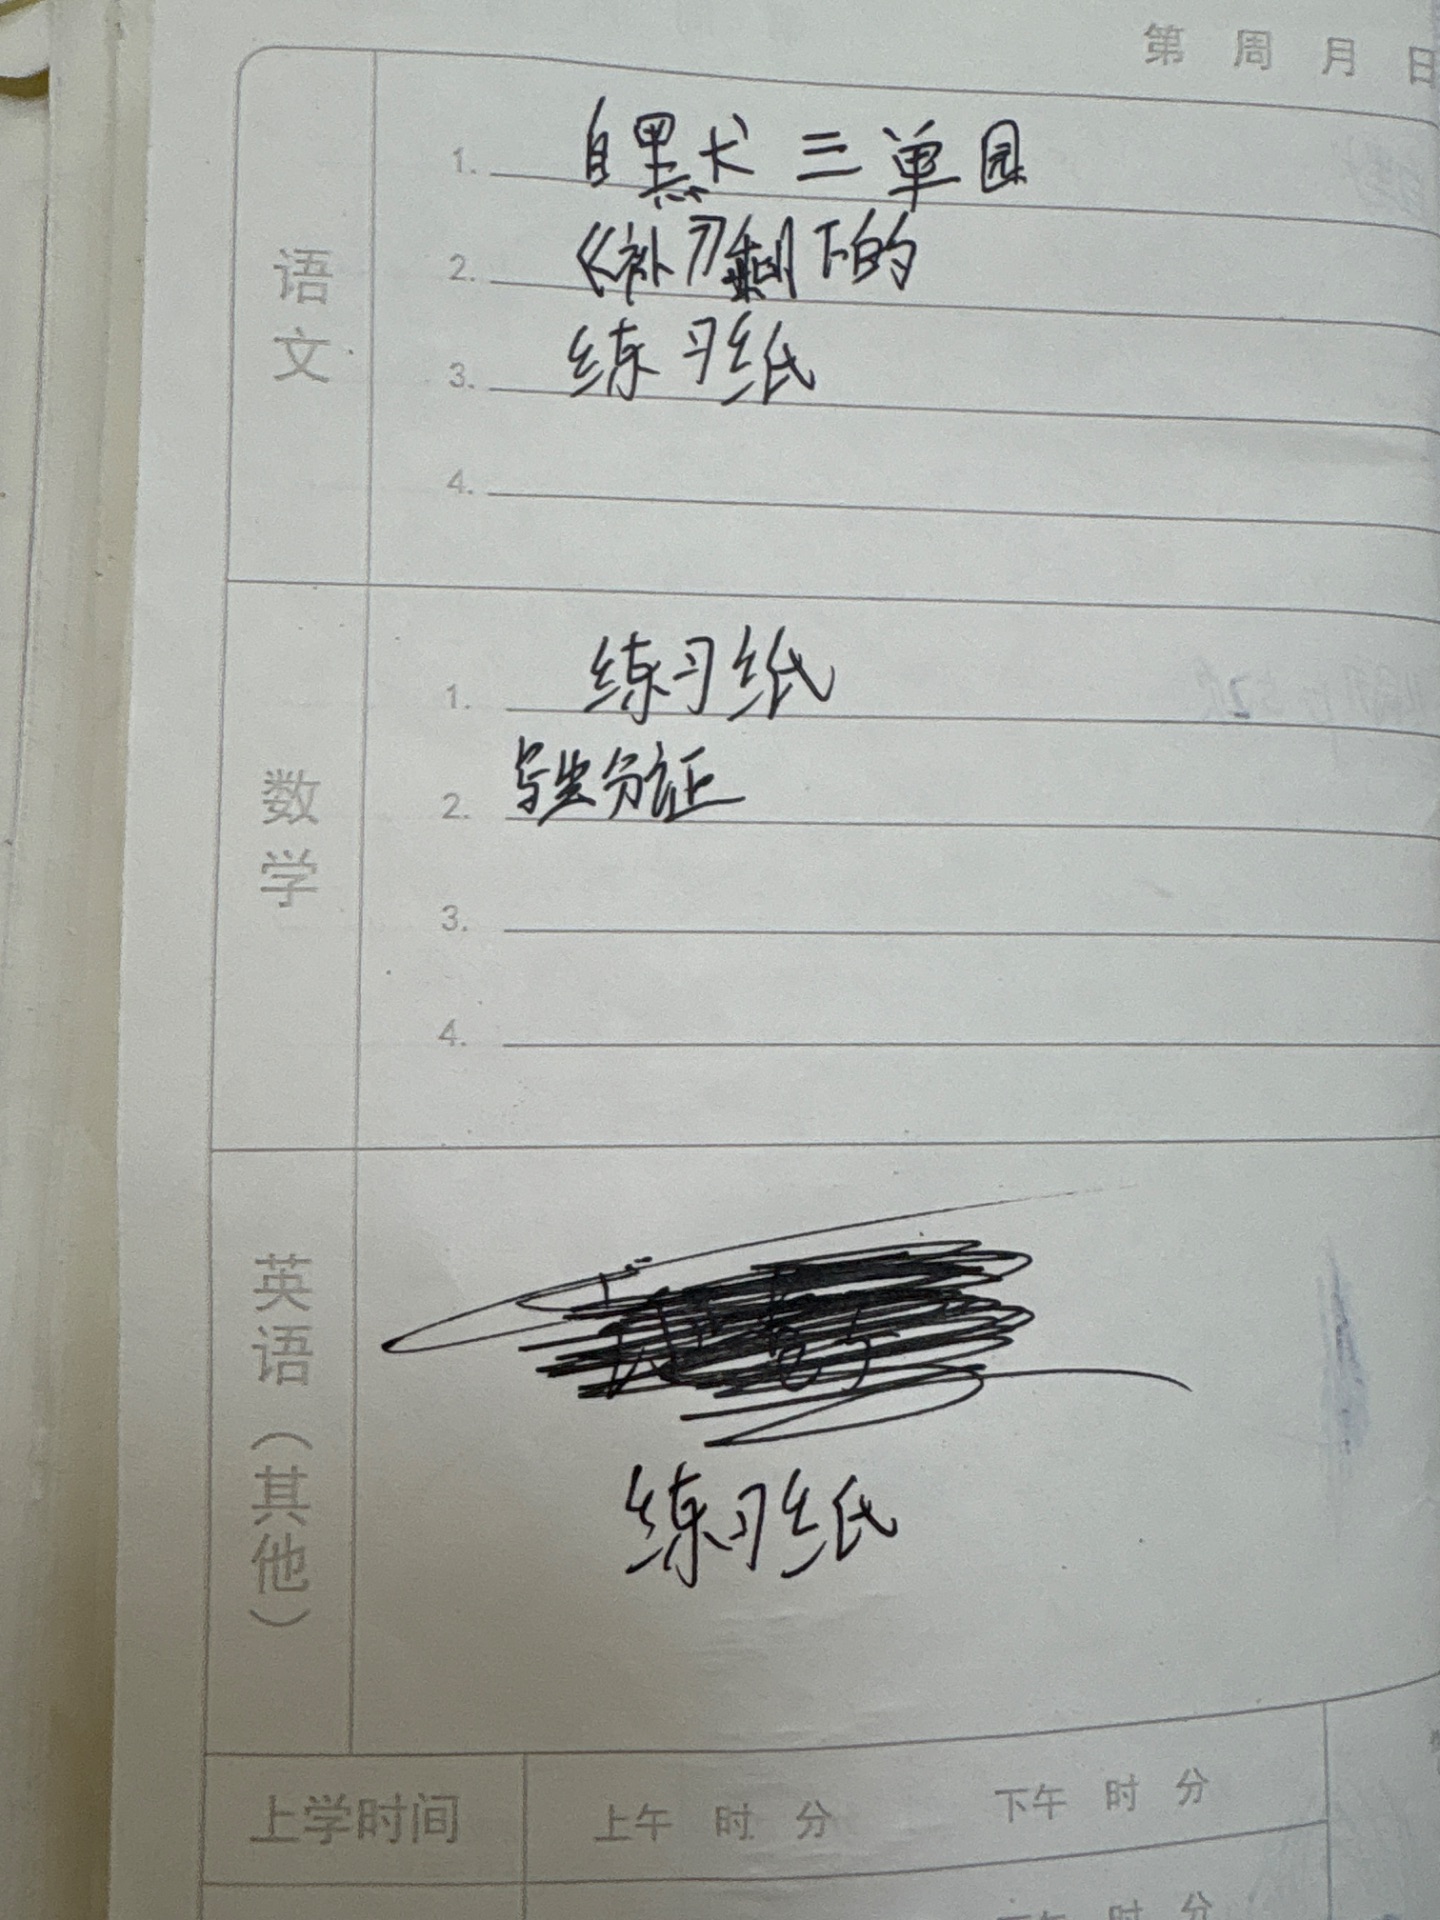 第 周 月 日
语文
1. 自黑犬 三 单 园
2. 《补》剩下的
3. 练习纸
4.
数学
1. 练习纸
2.
3.
4.
英语（其他）
练习纸
上学时间 上午 时 分 下午 时 分
时 分